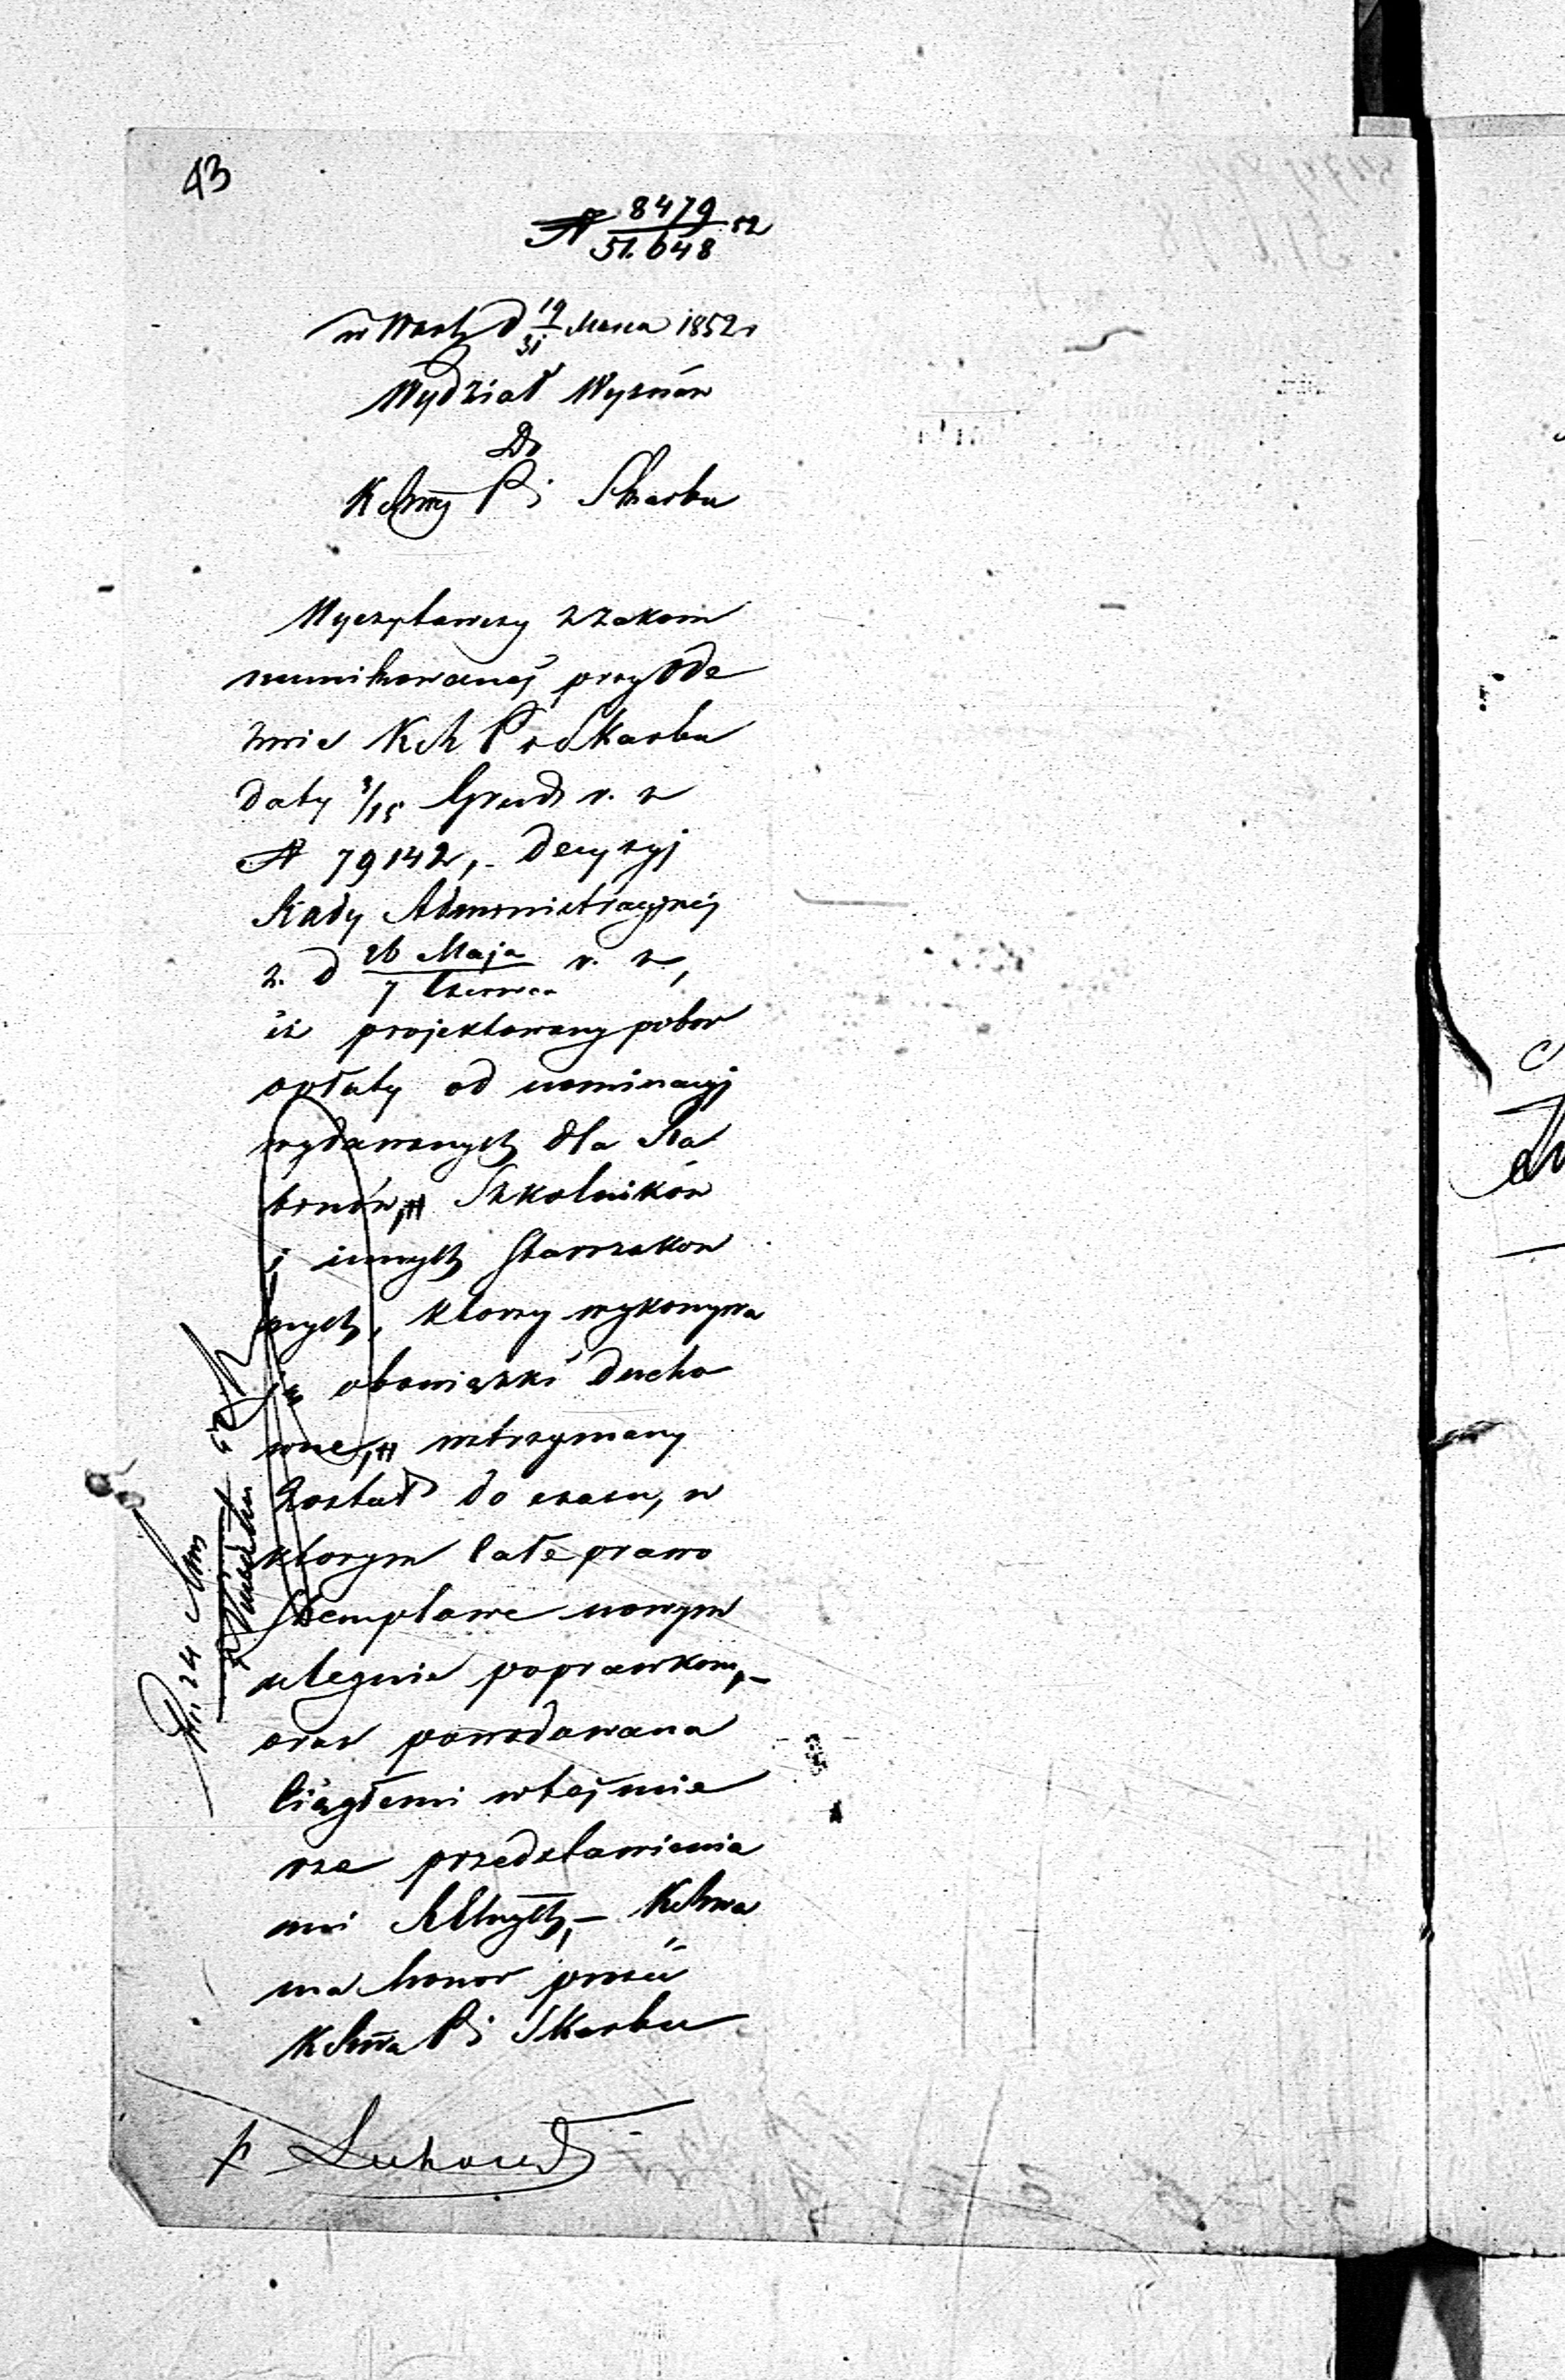 43
N 8479/51.648 52
w Warsz d 19/31 Marca 1852 r
Wydział Wyznań
Do
K Rząj Pi Skarbu
Wyczytawszy z zakom
munikowanéj przy Ode
zwie K R P i Skarbu
daty 3/15 Grud r. z
N 79142, - decyzyj
Rady Administracyjnéj
z. d 26 Maja/7 Czerwca r. z,
iż projektowany pobór
opłaty od nominacyj
wydawanych dla Ra
binów, Szkolników
i innych Starozakon
nych, którzy wykonywa
ją obowiązki ducho
wne, wstrzymany
został do czasu, w
którym całe prawo
stemplowe nowym
ulegnie poprawkom, -
oraz powodowana
ciągłemi w téj mie
rze przedstawienia
mi -
ma honor prosić
Pi Skarbu